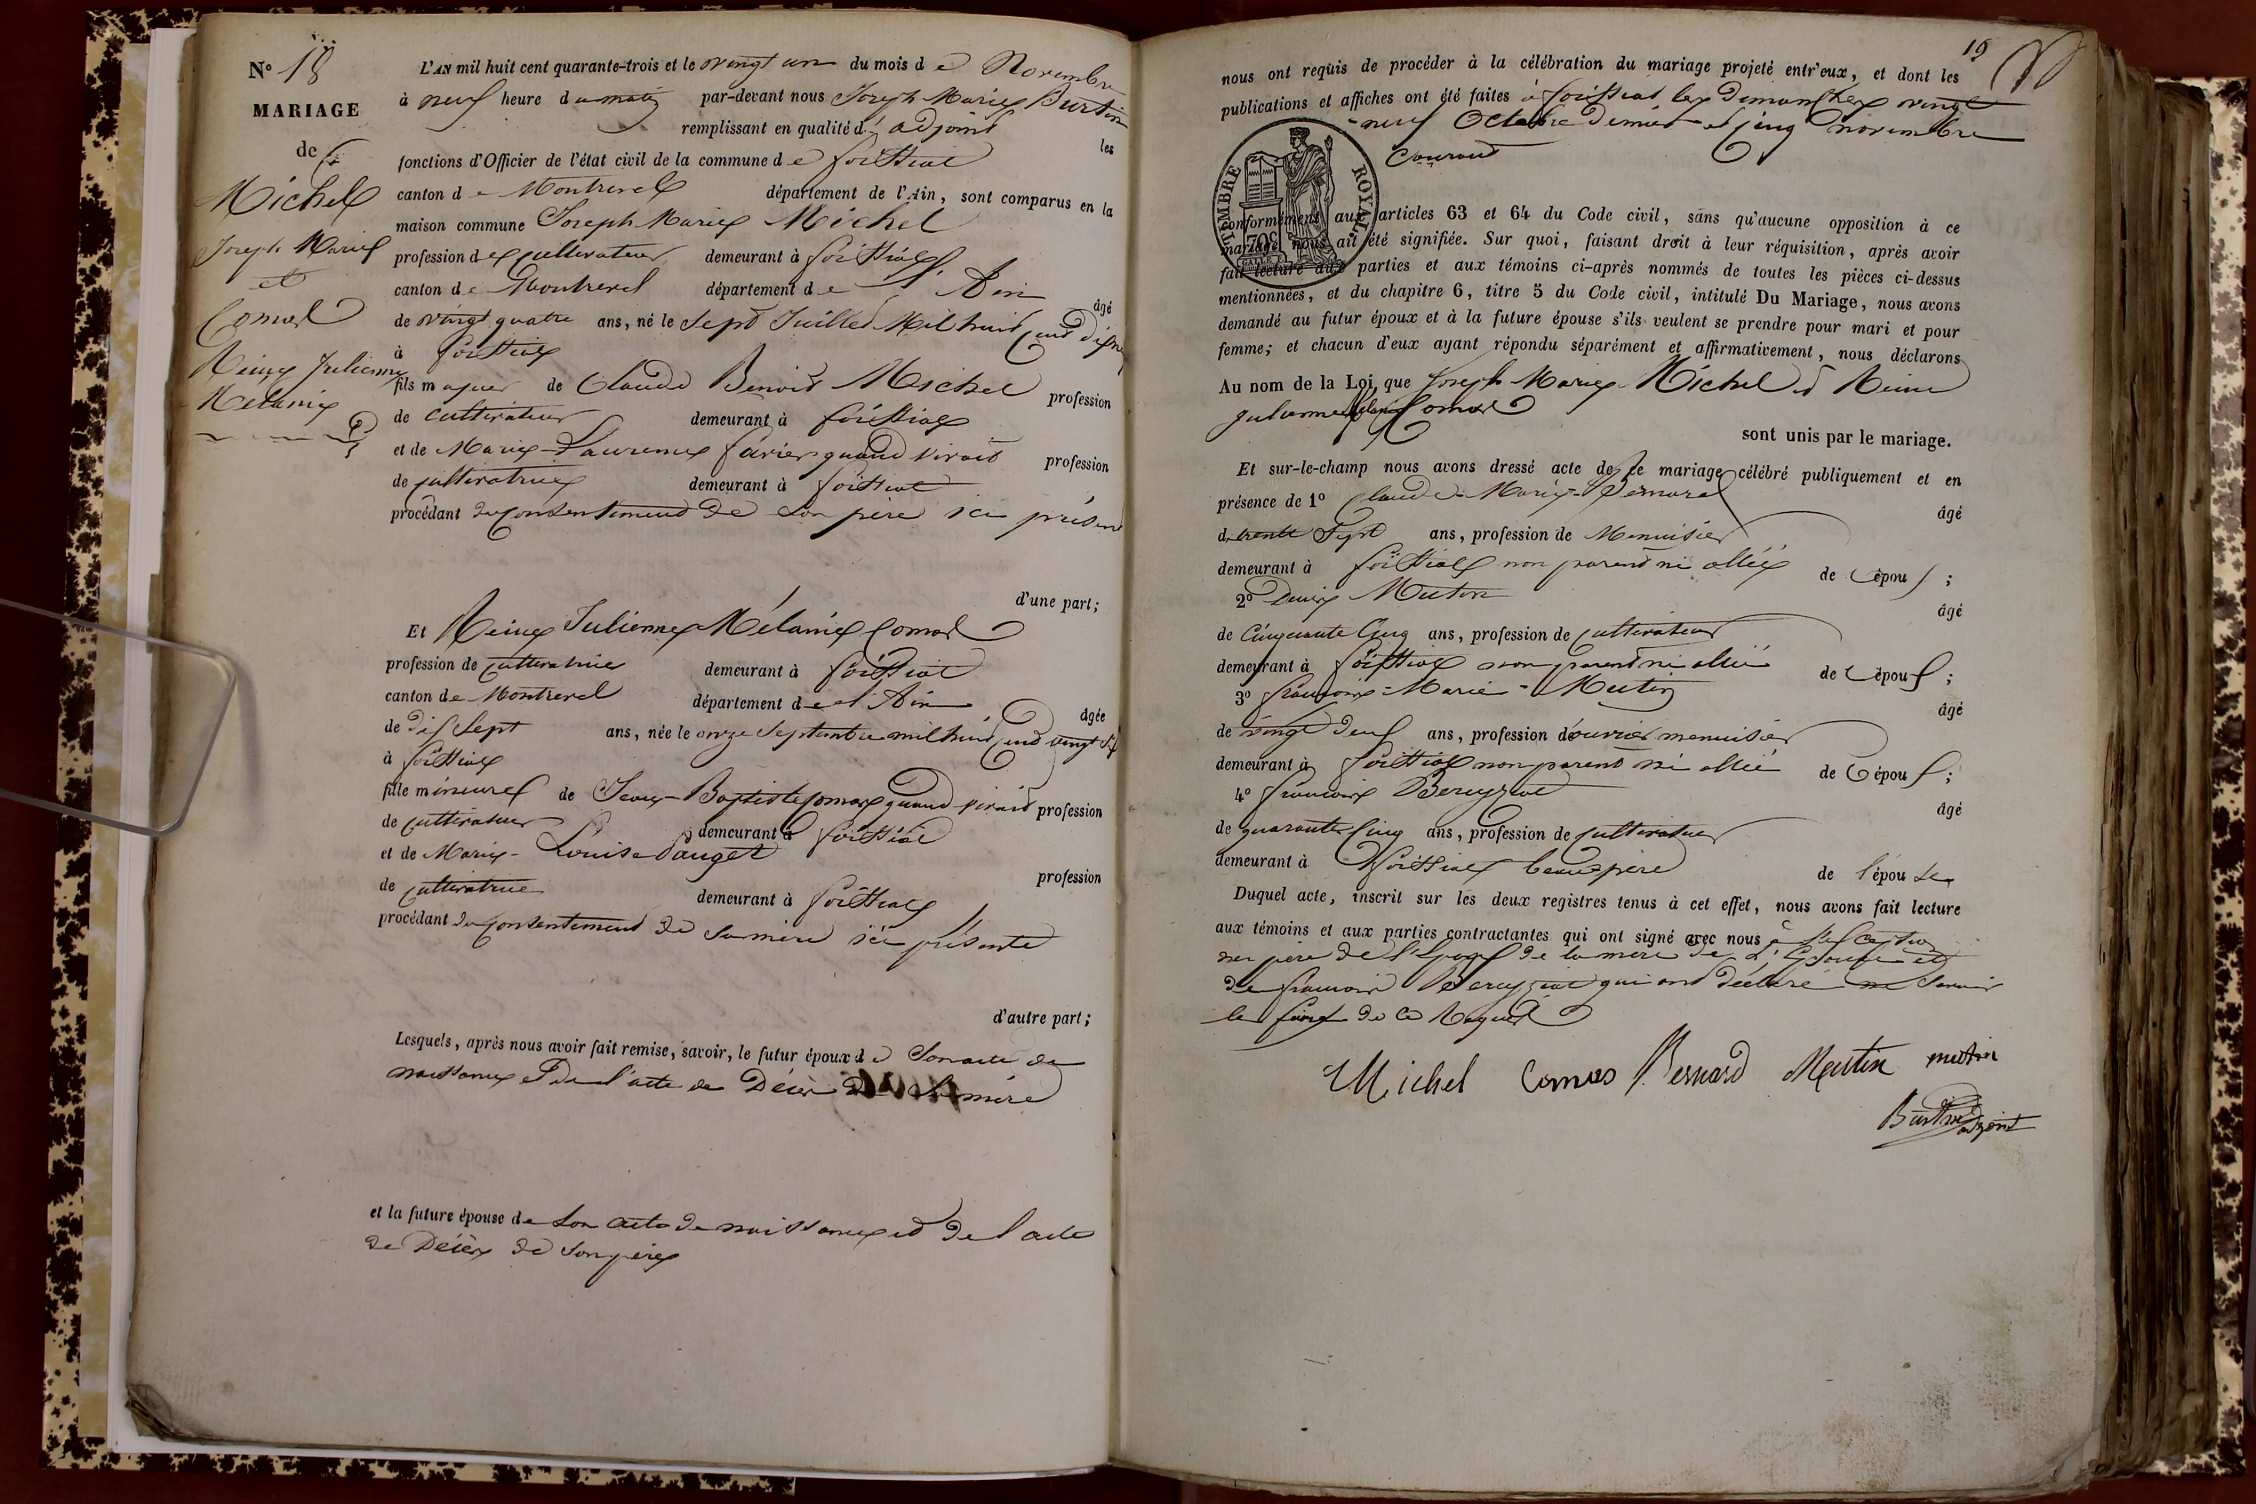 N° 18
MARIAGE
de
Michel
Joseph Marie
et
Comas
Reine Julienne
Melanie
L'AN mil huit cent quarante-trois et le vingt un du mois de Novembre
à neuf heure du matin par-devant nous Joseph Marie Burtin
remplissant en qualité d' adjoint les
fonctions d'Officier de l'état civil de la commune de foissiat
canton de Montrevel département de l'Ain, sont comparus en la
maison commune Joseph Marie Michel
profession de cultivateur demeurant à foissiat
canton de Montrevel département de l'Ain âgé
de vingt quatre ans, né le Sept Juillet Mil huit cent dix neuf
à foissiat
fils majeur de Claude Benoit Michel profession
de cultivateur demeurant à foissiat
et de Marie-Laurence favier quand vivait profession
de cultivatrice demeurant à foissiat
procédant du consentement de son père ici présent
d'une part;
Et Reine Julienne Mélanie Comas
profession de cultivatrice demeurant à foissiat
canton de Montrevel département de l'Ain âgée
de dix Sept ans, née le onze Septembre mil huit cent vingt six
à foissiat
fille mineure de Jean-Baptiste Comas quand vivait profession
de cultivateur demeurant à foissiat
et de Marie-Louise Pauget profession
de cultivatrice demeurant à foissiat
procédant du consentement de sa mère ici présente
d'autre part;
Lesquels, après nous avoir fait remise, savoir, le futur époux de Son acte de
naissance et de l'acte de Décès de sa mère
et la future épouse de Son acte de naissance et de l'acte
de Décès de Son père
19
nous ont requis de procéder à la célébration du mariage projeté entr'eux, et dont les
publications et affiches ont été faites à foissiat les Dimanches vingt
neuf Octobre dernier et cinq novembre
courant
TIMBRE ROYAL
70c
conformément aux articles 63 et 64 du Code civil, sans qu'aucune opposition à ce
mariage nous ait été signifiée. Sur quoi, faisant droit à leur réquisition, après avoir
fait lecture aux parties et aux témoins ci-après nommés de toutes les pièces ci-dessus
mentionnées, et du chapitre 6, titre 5 du Code civil, intitulé Du Mariage, nous avons
demandé au futur époux et à la future épouse s'ils veulent se prendre pour mari et pour
femme; et chacun d'eux ayant répondu séparément et affirmativement, nous déclarons
Au nom de la Loi que Joseph Marie Michel et Reine
Julienne Mélanie Comas
sont unis par le mariage.
Et sur-le-champ nous avons dressé acte de ce mariage célébré publiquement et en
présence de 1° Claude-Marie-Bernard âgé
de trente Sept ans, profession de Menuisier
demeurant à foissiat non parent ni allié de l'époux;
2° Denis Mutin âgé
de Cinquante Cinq ans, profession de cultivateur
demeurant à foissiat non parent ni allié de l'époux;
3° françois-Marie-Mutin âgé
de vingt deux ans, profession d'ouvrier menuisier
demeurant à foissiat non parent ni allié de l'époux;
4° françois Beruyziat âgé
de quarante Cinq ans, profession de cultivateur
demeurant à foissiat beau-père de l'épouse
Duquel acte, inscrit sur les deux registres tenus à cet effet, nous avons fait lecture
aux témoins et aux parties contractantes qui ont signé avec nous à l'exception
du père de l'époux de la mère de l'Epouse et
de françois Beruyziat qui ont déclaré ne Savoir
le faire de ce Requis
Michel Comas Bernard Mutin mutin
Burtin adjoint